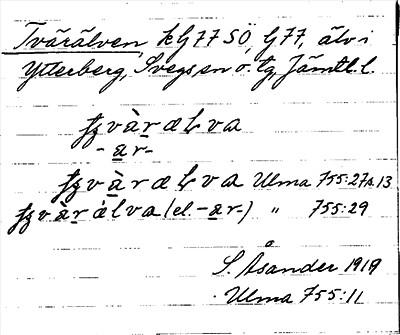 Tvärälven, kG77 SÖ, G77, älv i
Ytterberg, Svegs sn o. tg, Jämtl. l.
vàrælva
-ar-
vàrælva Ulma 755:27A.13
vàrælva (el. -ar-) " 755:29
S. Åsander 1919
Ulma 755:11